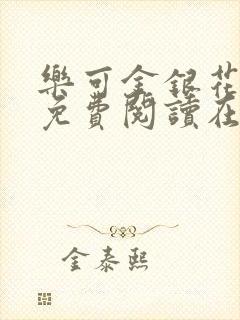 樂可金銀花
免費閱讀在
金泰熙